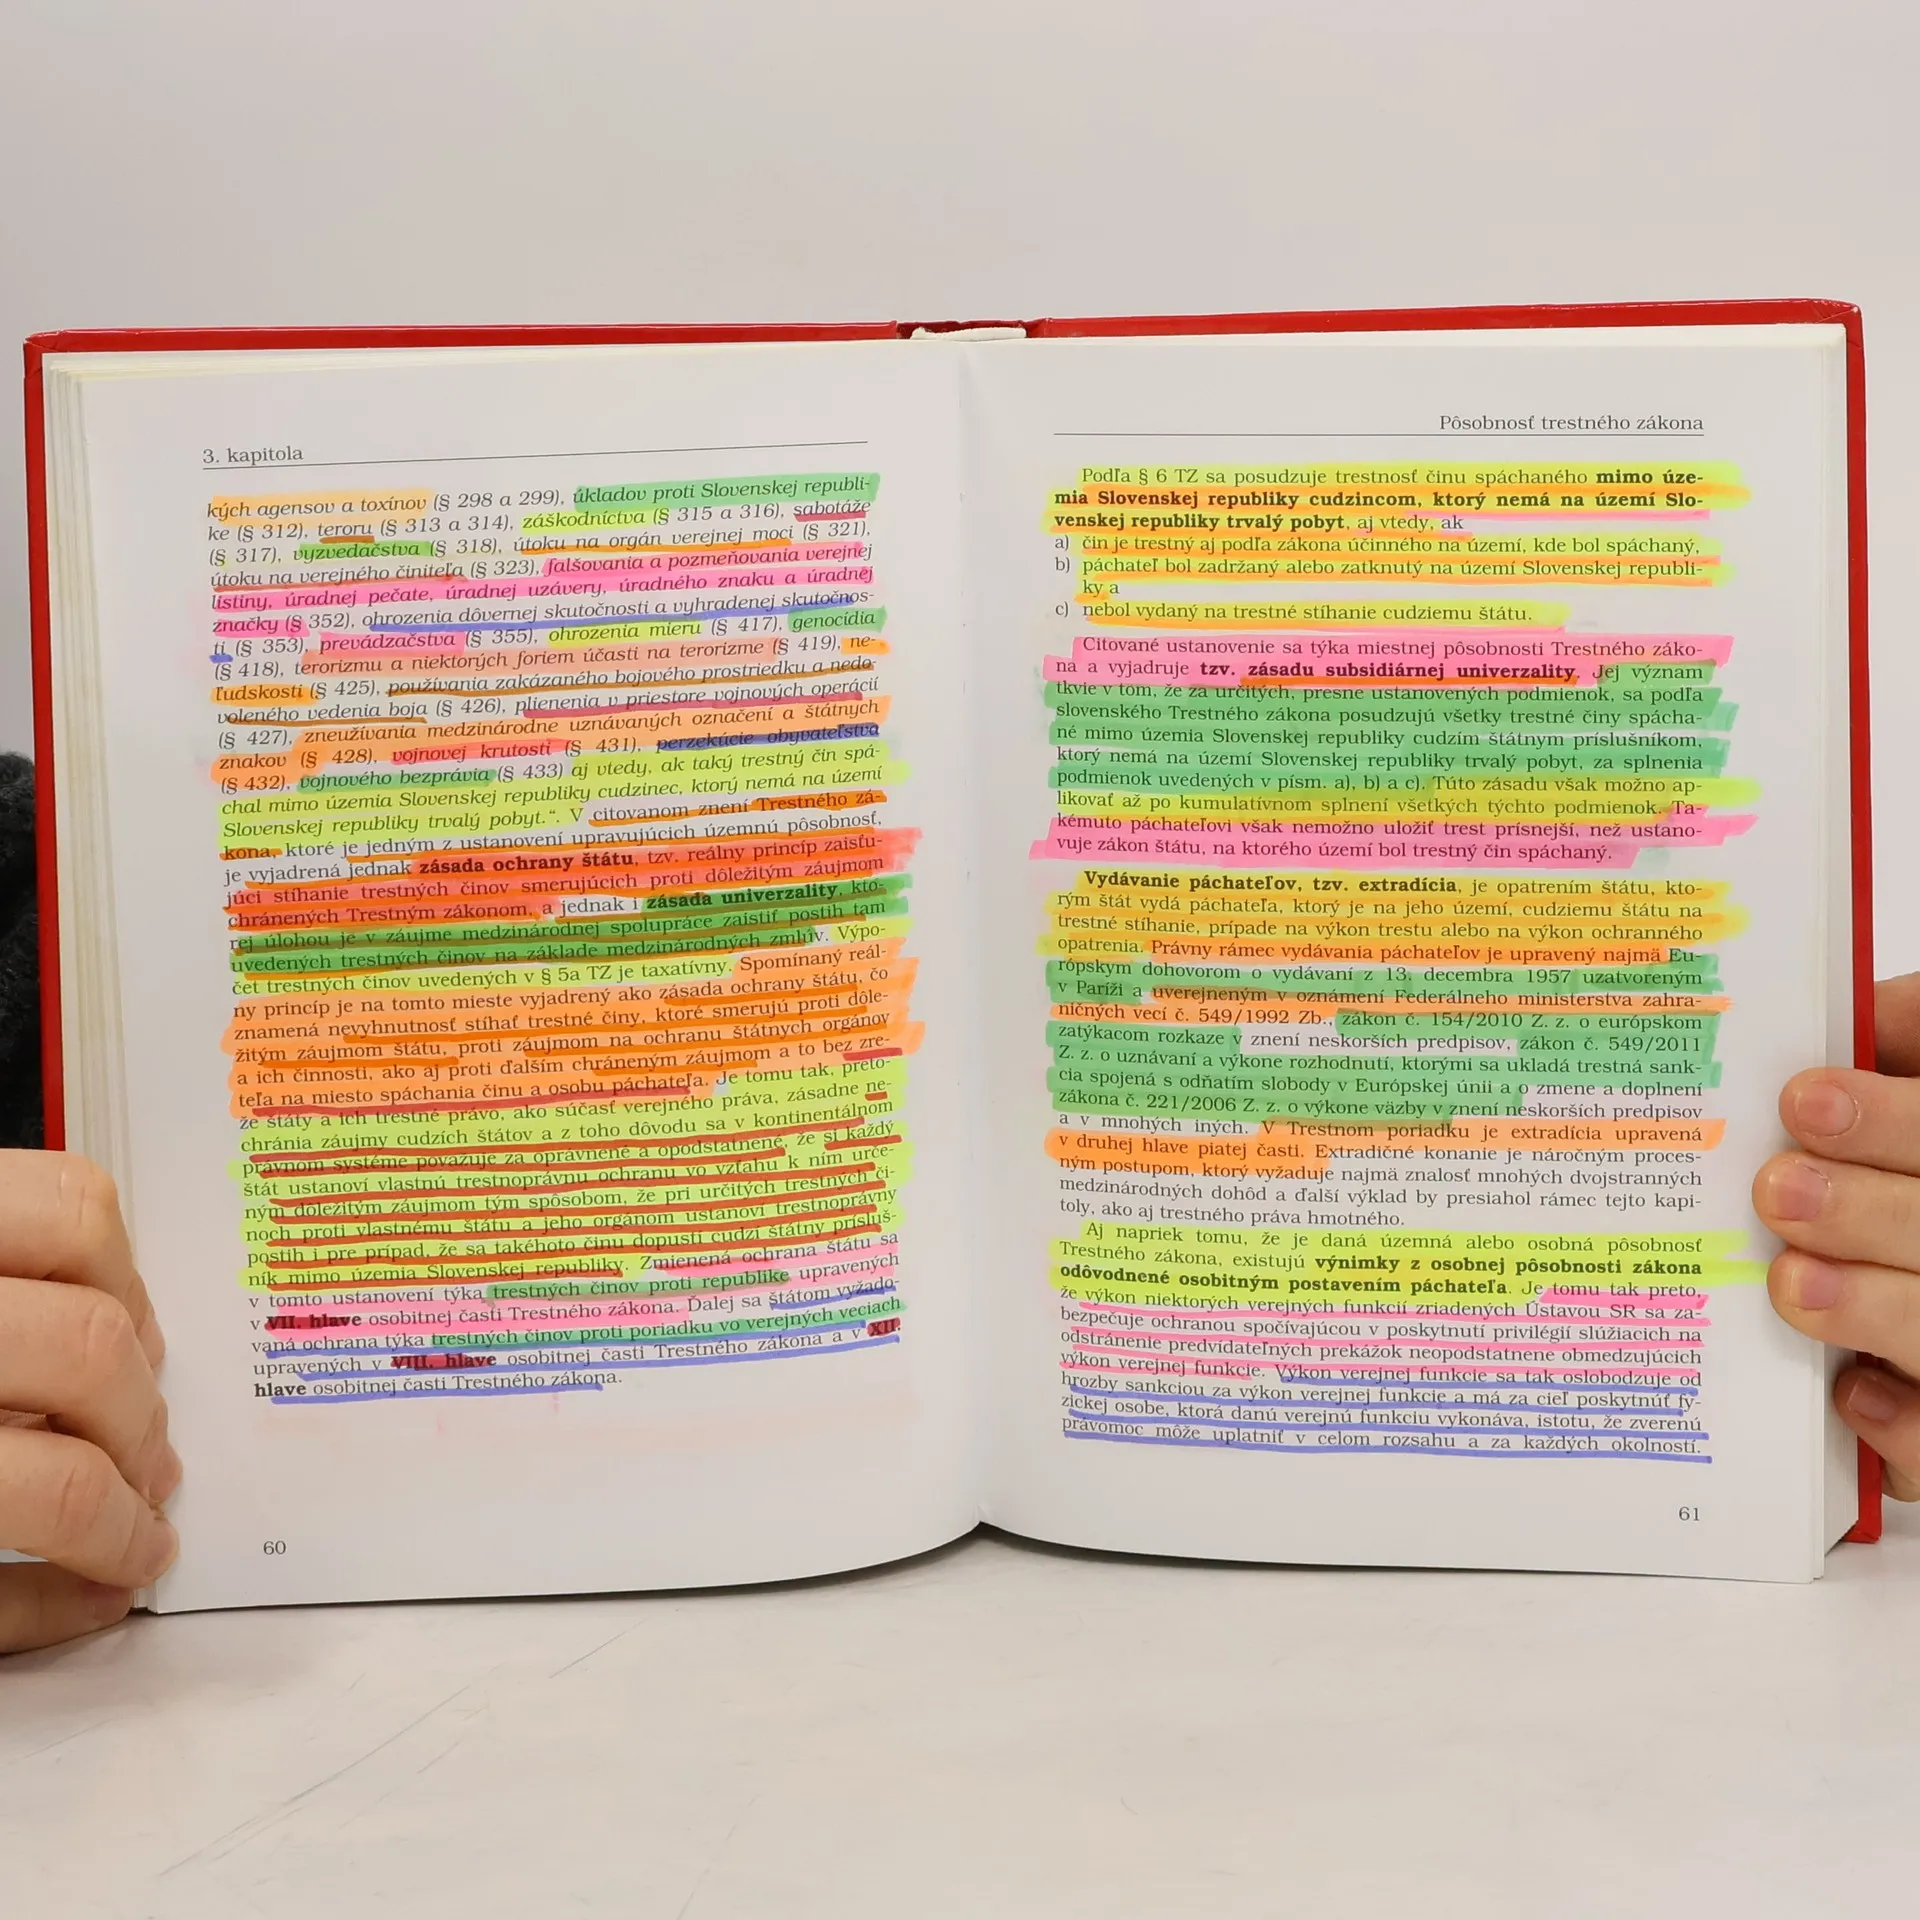 3. kapitola
kých agensov a toxínov (§ 298 a 299), úkladov proti Slovenskej republi-
ke (§ 312), teroru (§ 313 a 314), záškodníctva (§ 315 a 316), sabotáže
(§ 317), vyzvedačstva (§ 318), útoku na orgán verejnej moci (§ 321),
útoku na verejného činiteľa (§ 323), falšovania a pozmeňovania verejnej
listiny, úradnej pečate, úradnej uzávery, úradného znaku a úradnej
značky (§ 352), ohrozenia dôvernej skutočnosti a vyhradenej skutočnos-
ti (§ 353), prevádzačstva (§ 355), ohrozenia mieru (§ 417), genocídia
(§ 418), terorizmu a niektorých foriem účasti na terorizme (§ 419), ne-
ľudskosti (§ 425), používania zakázaného bojového prostriedku a nedo-
voleného vedenia boja (§ 426), plienenia v priestore vojnových operácií
(§ 427), zneužívania medzinárodne uznávaných označení a štátnych
znakov (§ 428), vojnovej krutosti (§ 431), perzekúcie obyvateľstva
(§ 432), vojnového bezprávia (§ 433) aj vtedy, ak taký trestný čin spá-
chal mimo územia Slovenskej republiky cudzinec, ktorý nemá na území
Slovenskej republiky trvalý pobyt.“. V citovanom znení Trestného zá-
kona, ktoré je jedným z ustanovení upravujúcich územnú pôsobnosť,
je vyjadrená jednak zásada ochrany štátu, tzv. reálny princíp zaisťu-
júci stíhanie trestných činov smerujúcich proti dôležitým záujmom
chráneným Trestným zákonom, a jednak i zásada univerzality, kto-
rej úlohou je v záujme medzinárodnej spolupráce zaistiť postih tam
uvedených trestných činov na základe medzinárodných zmlúv. Výpo-
čet trestných činov uvedených v § 5a TZ je taxatívny. Spomínaný reál-
ny princíp je na tomto mieste vyjadrený ako zásada ochrany štátu, čo
znamená nevyhnutnosť stíhať trestné činy, ktoré smerujú proti dôle-
žitým záujmom štátu, proti záujmom na ochranu štátnych orgánov
a ich činnosti, ako aj proti ďalším chráneným záujmom a to bez zre-
teľa na miesto spáchania činu a osobu páchateľa. Je tomu tak, preto-
že štáty a ich trestné právo, ako súčasť verejného práva, zásadne ne-
chránia záujmy cudzích štátov a z toho dôvodu sa v kontinentálnom
právnom systéme považuje za oprávnené a opodstatnené, že si každý
štát ustanoví vlastnú trestnoprávnu ochranu vo vzťahu k ním urče-
ným dôležitým záujmom tým spôsobom, že pri určitých trestných či-
noch proti vlastnému štátu a jeho orgánom ustanoví trestnoprávny
postih i pre prípad, že sa takéhoto činu dopustí cudzí štátny prísluš-
ník mimo územia Slovenskej republiky. Zmienená ochrana štátu sa
v tomto ustanovení týka trestných činov proti republike upravených
v VII. hlave osobitnej časti Trestného zákona. Ďalej sa štátom vyžado-
vaná ochrana týka trestných činov proti poriadku vo verejných veciach
upravených v VIII. hlave osobitnej časti Trestného zákona a v XII.
hlave osobitnej časti Trestného zákona.
60
Pôsobnosť trestného zákona
Podľa § 6 TZ sa posudzuje trestnosť činu spáchaného mimo úze-
mia Slovenskej republiky cudzincom, ktorý nemá na území Slo-
venskej republiky trvalý pobyt, aj vtedy, ak
a) čin je trestný aj podľa zákona účinného na území, kde bol spáchaný,
b) páchateľ bol zadržaný alebo zatknutý na území Slovenskej republi-
ky a
c) nebol vydaný na trestné stíhanie cudziemu štátu.
Citované ustanovenie sa týka miestnej pôsobnosti Trestného záko-
na a vyjadruje tzv. zásadu subsidiárnej univerzality. Jej význam
tkvie v tom, že za určitých, presne ustanovených podmienok, sa podľa
slovenského Trestného zákona posudzujú všetky trestné činy spácha-
né mimo územia Slovenskej republiky cudzím štátnym príslušníkom,
ktorý nemá na území Slovenskej republiky trvalý pobyt, za splnenia
podmienok uvedených v písm. a), b) a c). Túto zásadu však možno ap-
likovať až po kumulatívnom splnení všetkých týchto podmienok. Ta-
kémuto páchateľovi však nemožno uložiť trest prísnejší, než ustano-
vuje zákon štátu, na ktorého území bol trestný čin spáchaný.
Vydávanie páchateľov, tzv. extradícia, je opatrením štátu, kto-
rým štát vydá páchateľa, ktorý je na jeho území, cudziemu štátu na
trestné stíhanie, prípade na výkon trestu alebo na výkon ochranného
opatrenia. Právny rámec vydávania páchateľov je upravený najmä Eu-
rópskym dohovorom o vydávaní z 13. decembra 1957 uzatvoreným
v Paríži a uverejneným v oznámení Federálneho ministerstva zahra-
ničných vecí č. 549/1992 Zb., zákon č. 154/2010 Z. z. o európskom
zatýkacom rozkaze v znení neskorších predpisov, zákon č. 549/2011
Z. z. o uznávaní a výkone rozhodnutí, ktorými sa ukladá trestná sank-
cia spojená s odňatím slobody v Európskej únii a o zmene a doplnení
zákona č. 221/2006 Z. z. o výkone väzby v znení neskorších predpisov
a v mnohých iných. V Trestnom poriadku je extradícia upravená
v druhej hlave piatej časti. Extradičné konanie je náročným proces-
ným postupom, ktorý vyžaduje najmä znalosť mnohých dvojstranných
medzinárodných dohôd a ďalší výklad by presiahol rámec tejto kapi-
toly, ako aj trestného práva hmotného.
Aj napriek tomu, že je daná územná alebo osobná pôsobnosť
Trestného zákona, existujú výnimky z osobnej pôsobnosti zákona
odôvodnené osobitným postavením páchateľa. Je tomu tak preto,
že výkon niektorých verejných funkcií zriadených Ústavou SR sa za-
bezpečuje ochranou spočívajúcou v poskytnutí privilégií slúžiacich na
odstránenie predvídateľných prekážok neopodstatnene obmedzujúcich
výkon verejnej funkcie. Výkon verejnej funkcie sa tak oslobodzuje od
hrozby sankciou za výkon verejnej funkcie a má za cieľ poskytnúť fy-
zickej osobe, ktorá danú verejnú funkciu vykonáva, istotu, že zverenú
právomoc môže uplatniť v celom rozsahu a za každých okolností.
61